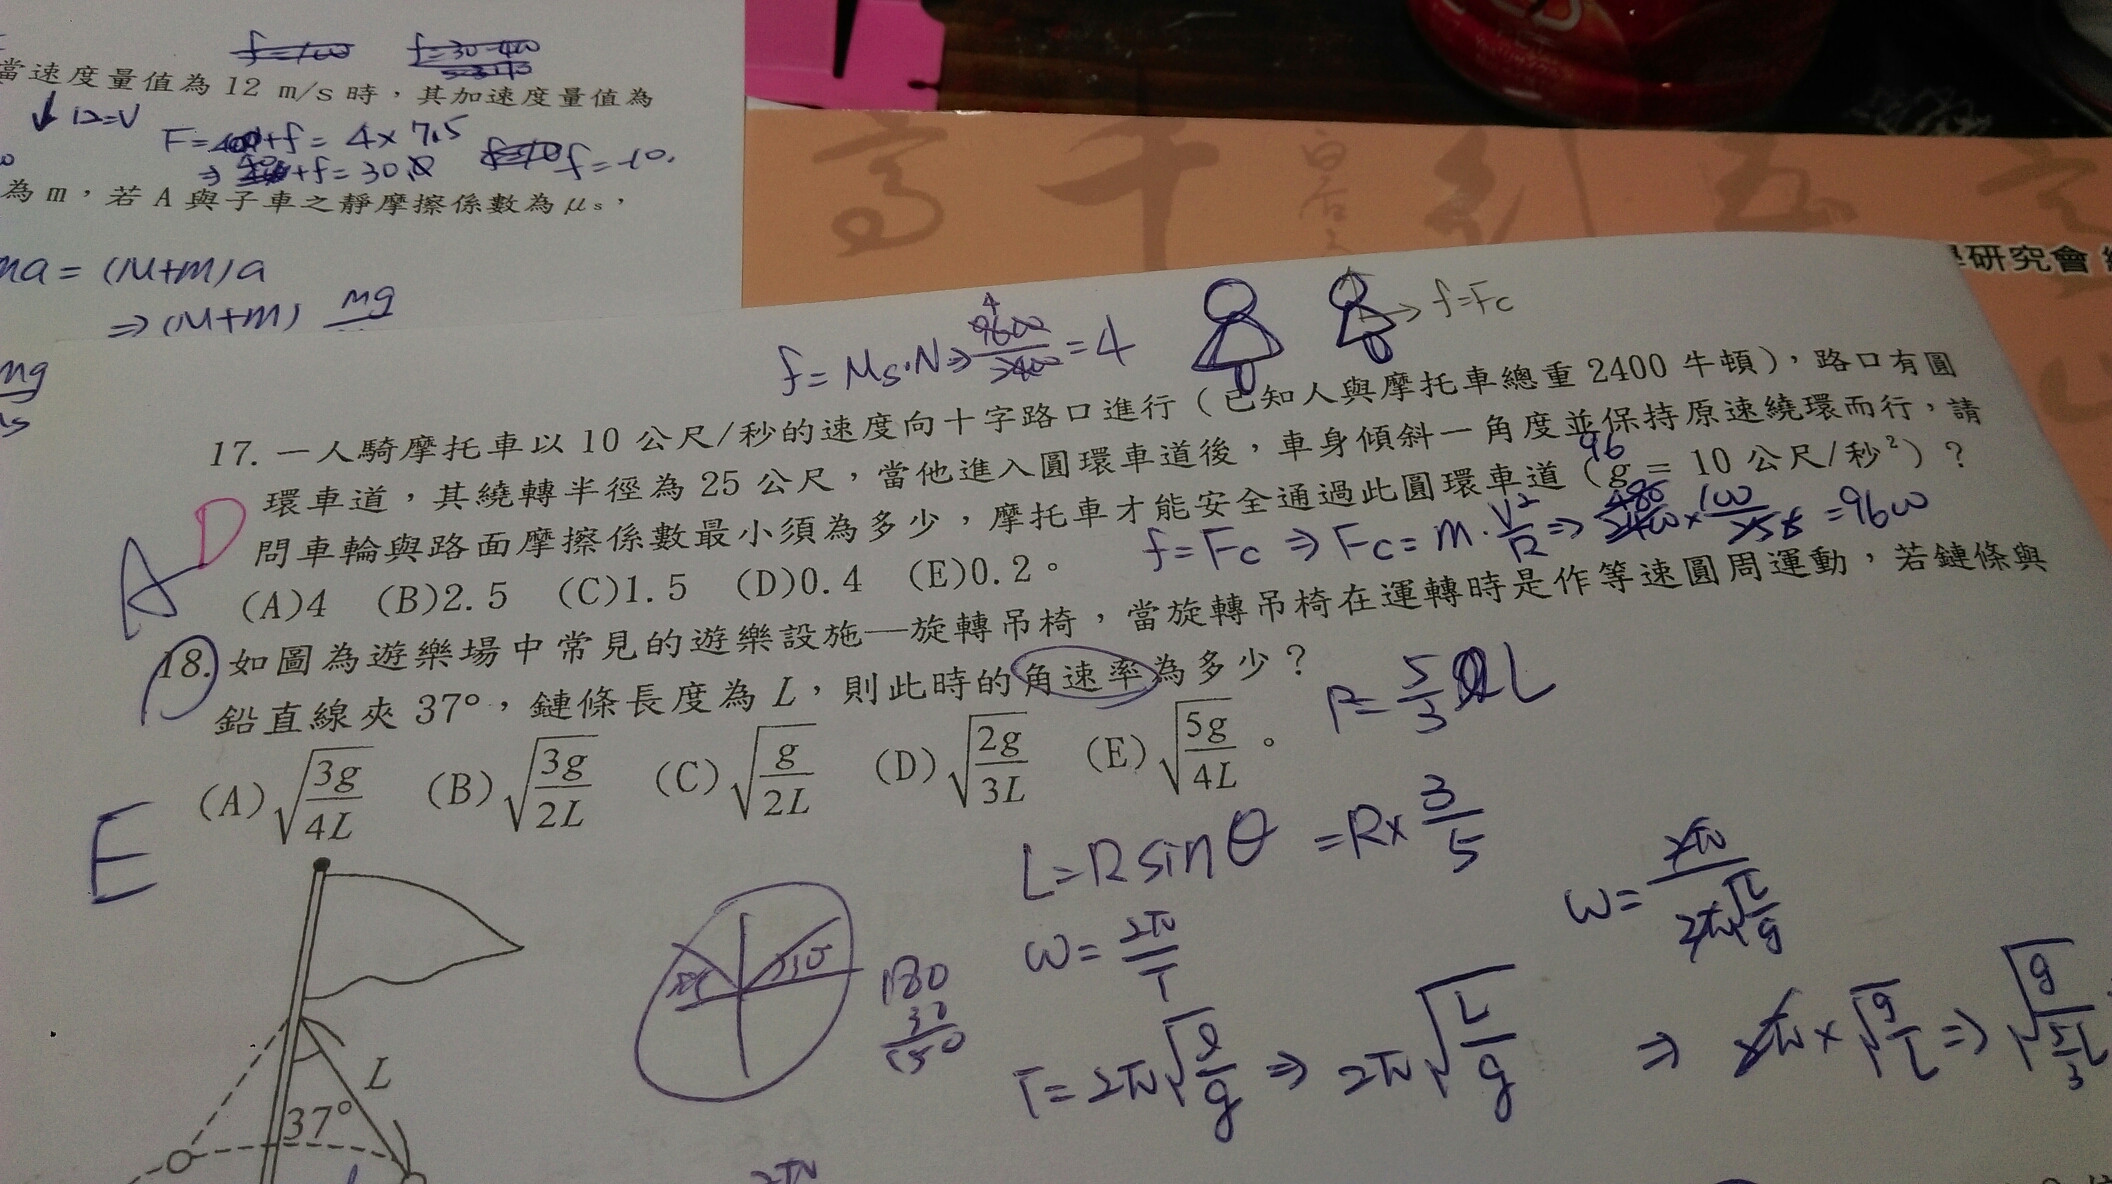 f=100
f=30-400
當速度量值為12 m/s時，其加速度量值為
↓12=V
F=400+f= 4×7.5
⇒ 40+f=30 f=-10.
為m，若A與子車之靜摩擦係數為μs，
ma=(M+m)a
⇒(M+m) mg
mg
學研究會
f=Ms·N⇒9600/2400=4
4
→f=Fc
17. 一人騎摩托車以10公尺/秒的速度向十字路口進行（已知人與摩托車總重2400牛頓），路口有圓
環車道，其繞轉半徑為25公尺，當他進入圓環車道後，車身傾斜一角度並保持原速繞環而行，請
問車輪與路面摩擦係數最小須為多少，摩托車才能安全通過此圓環車道（g = 10公尺/秒²）？
96
A D
(A)4 (B)2.5 (C)1.5 (D)0.4 (E)0.2。
f=Fc ⇒ Fc=m·V²/R⇒ 2400×100/25 =9600
18. 如圖為遊樂場中常見的遊樂設施—旋轉吊椅，當旋轉吊椅在運轉時是作等速圓周運動，若鏈條與
鉛直線夾37°，鏈條長度為L，則此時的角速率為多少？
R=5/3 L
(A)√(3g/4L) (B)√(3g/2L) (C)√(g/2L) (D)√(2g/3L) (E)√(5g/4L)。
E
L=Rsinθ =R×3/5
ω=2π/T
ω=2π/2π√(L/g)
180
30
150
T=2π√(l/g)⇒2π√(L/g)
⇒ 2π×√(g/L)⇒√(g/(5/3)L)
L
37°
2π